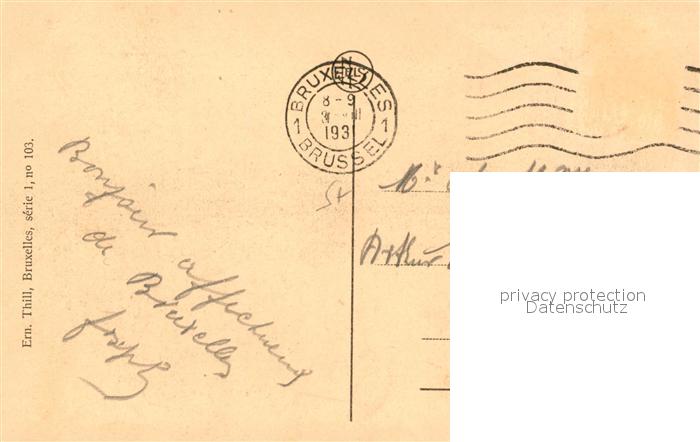 Ern. Thill, Bruxelles, série 1, no 103.
BRUXELLES
8-9
193
1 1
BRUSSEL
Bonjour affectueux
de Bruxelles
Joseph
Arthur
privacy protection
Datenschutz